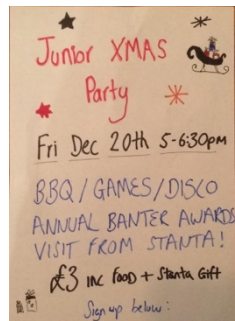 Junior XMAS
Party
Fri Dec 20th 5-6:30pm
BBQ/GAMES/DISCO
ANNUAL BANTER AWARDS
VISIT FROM STANTA!
£3 inc FOOD + Stanta Gift
Sign up below: